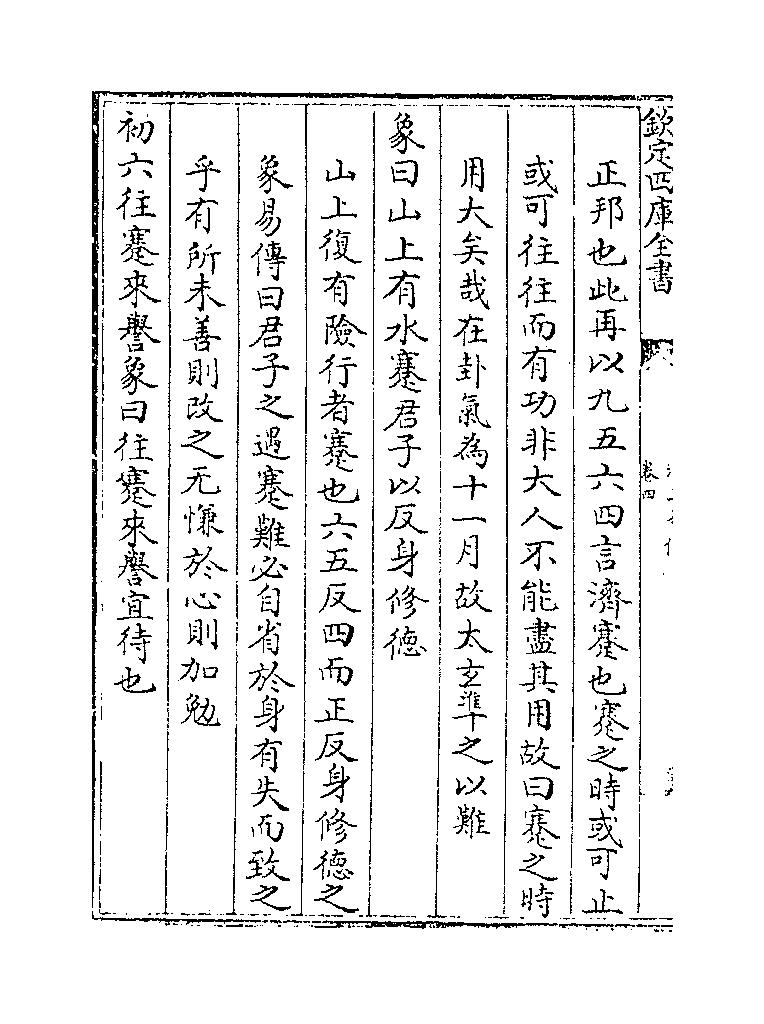 欽定四庫全書
卷四
正邦也此再以九五六四言濟蹇也蹇之時或可止
或可往往而有功非大人不能盡其用故曰蹇之時
用大矣哉在卦氣為十一月故太玄準之以難
象曰山上有水蹇君子以反身修德
山上復有險行者蹇也六五反四而正反身修德之
象易傳曰君子之遇蹇難必自省於身有失而致之
乎有所未善則改之无慊於心則加勉
初六往蹇來譽象曰往蹇來譽宜待也